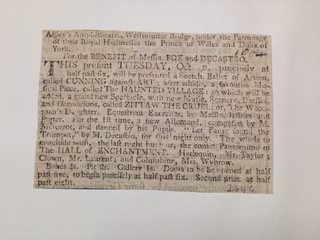 Astley's Amphitheatre, Westminster Bridge, under the Patronage
of their Royal Highnesses the Prince of Wales and Duke of
York.
For the BENEFIT of Messrs. FOX and DECASTRO.
THIS present TUESDAY, Oct. 2, precisely at
half past six, will be presented a Scotch Ballet of Action,
called CUNNING against ART; after which, a favourite Mu-
sical Piece, called The HAUNTED VILLAGE; to which will be
added, a grand new Spectacle, with new Music, Scenery, Dresses,
and Decorations, called ZITTAW THE CRUEL; or, The Wood-
man's Daughter. Equestrian Exercises, by Messrs. and
Porter. For the 1st time, a new Allemand, composed by M.
and danced by his Pupils. "Let Fame sound the
Trumpet," by Mr. Decastro, for that night only. The whole to
conclude with, the last night but four, the comic Pantomime of
The HALL of ENCHANTMENT. Harlequin, Mr. Taylor;
Clown, Mr. Laurent; and Columbine, Mrs. Wybrow.
Boxes 4s. Pit 2s. Gallery 1s. Doors to be opened at half
past five, to begin precisely at half past six. Second price at half
past eight.